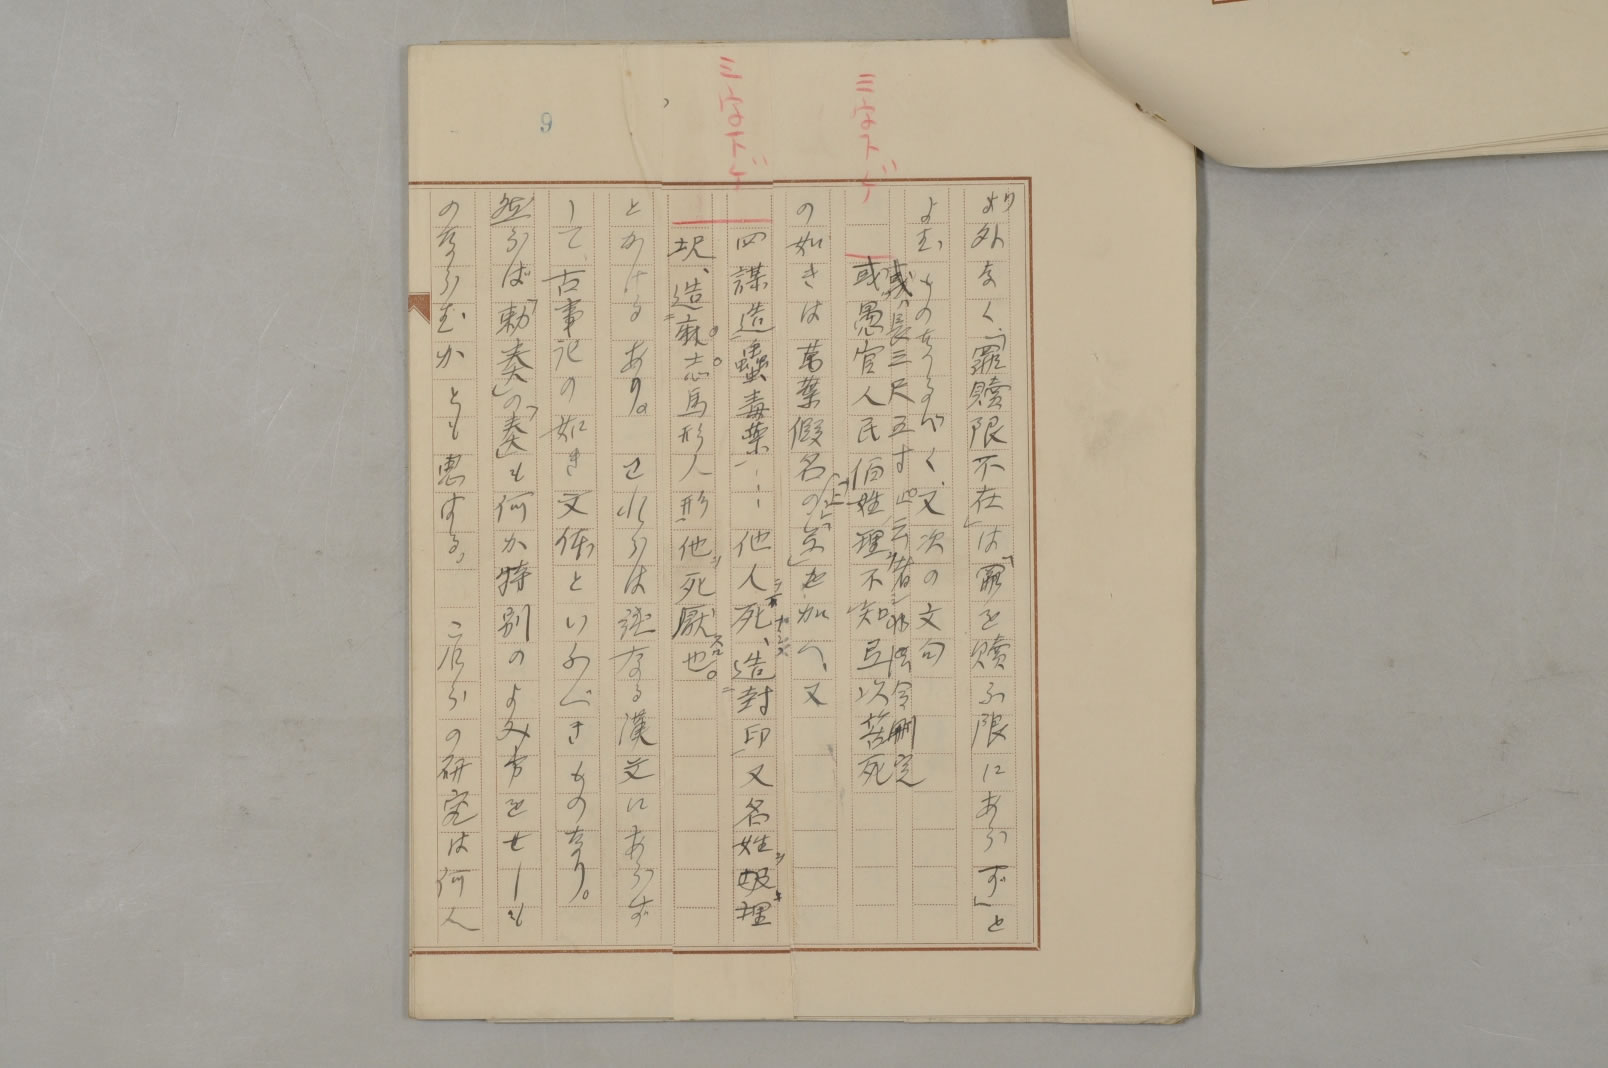 三字下ゲ
三字下ゲ
9
外なく、「罪贖限不在」は「罪を贖ふ限にあらず」と
よむものなるべく、又次の文句
或長三尺五寸 此云者非法令刪定
或愚官人民佰姓理不知且以苦死
の如きは萬葉假名の「」を加へ、又
四謀造蠱毒藥――他人死、造封印又名姓 理
造麻志馬形人形他死厭也。
とかけるあり。これらは純なる漢文にあらず
して、古事記の如き文体といふべきものなり。
然らば「勅奏」の「奏」も何か特別のよみ方をせしも
のならむかとも思はる。此らの研究は何人